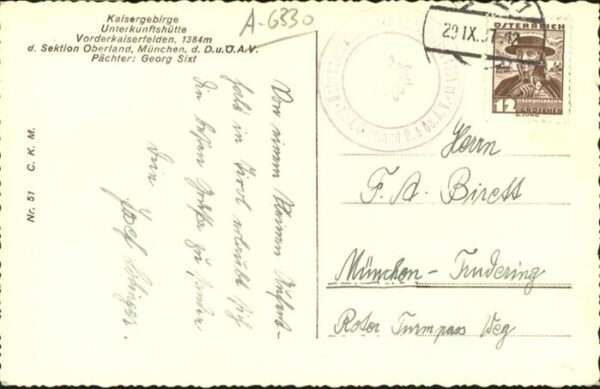 Kaisergebirge
Unterkunftshütte
Vorderkaiserfelden, 1384m
d. Sektion Oberland, München, d. D.u.Ö.A.V.
Pächter: Georg Sixt
A-6330
29.IX.37
ÖSTERREICH
12 GROSCHEN
Nr. 51 C. K. M.
Von einem kleinen Aufent-
halt in Tirol erlaubt sich
die besten Grüße zu senden
Dein
Josef
Herrn
F. A. Birett
München - Trudering
Roter Turmpass Weg